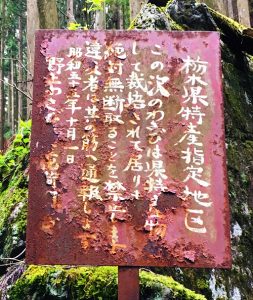 栃木県特産指定地区
この沢のわさびは県特産
して栽培されて居ります
絶対無断取ることを禁じます
違う者は其の筋へ通報します
昭和五十 年十月一日
野上わさび